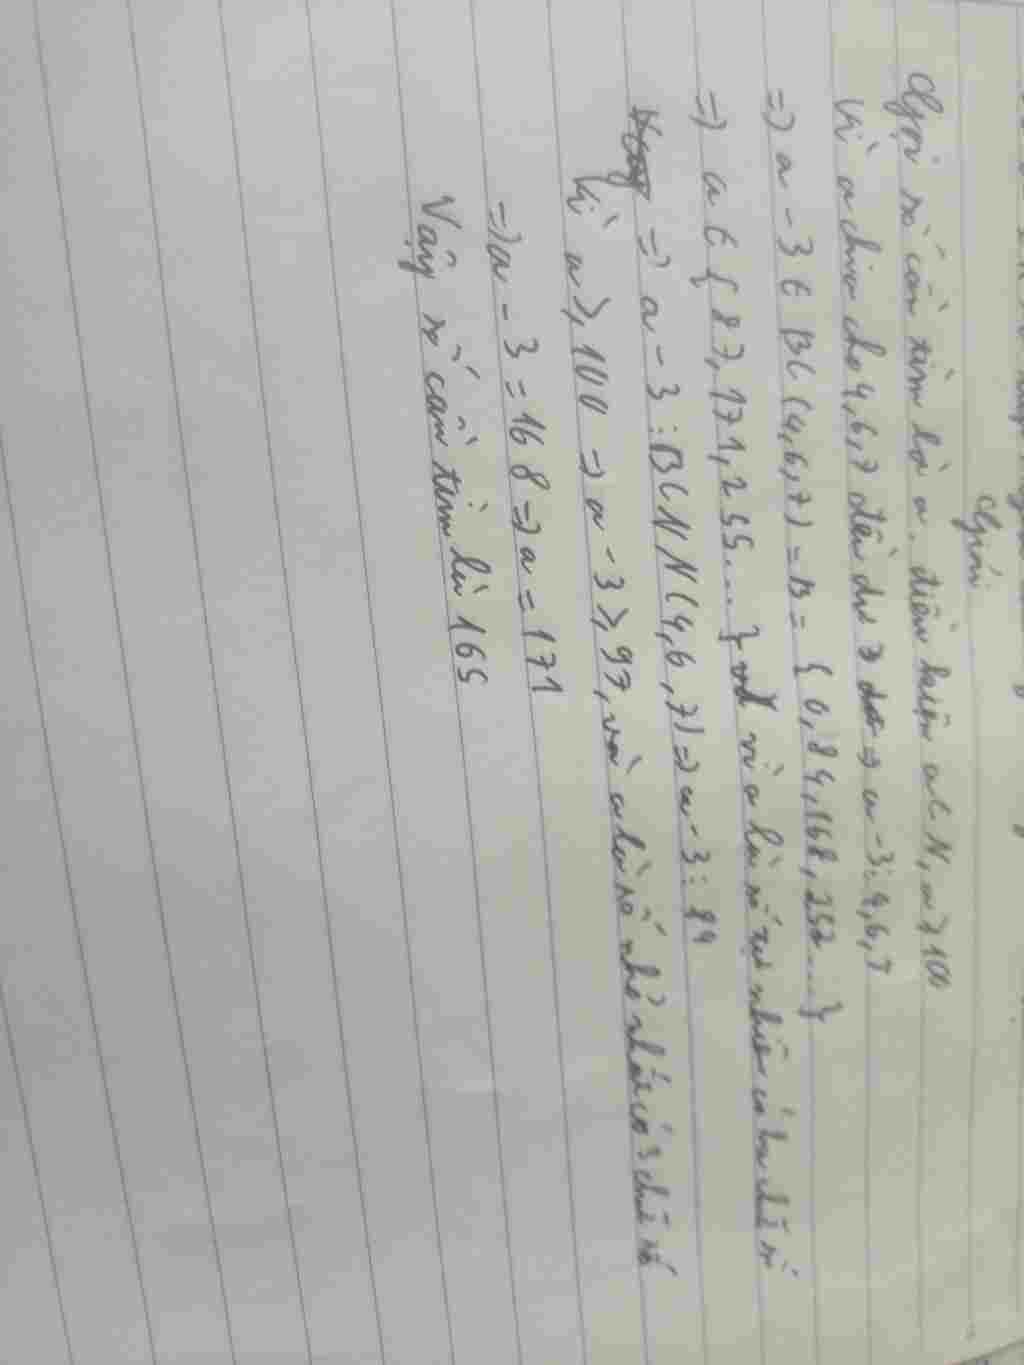 Giải
Gọi số cần tìm là a. điều kiện a ∈ N, a ≥ 100
Vì a chia cho 4,6,7 đều dư 3 => a - 3 ⋮ 4,6,7
=> a - 3 ∈ BC(4,6,7) = B = {0,84,168,252....}
=> a ∈ {87,171,255....} vì a là số tự nhiên có ba chữ số
=> a - 3 : BCNN(4,6,7) => a - 3 : 84
Vì a ≥ 100 => a - 3 ≥ 97, và a là số nhỏ nhất có 3 chữ số
=> a - 3 = 168 => a = 171
Vậy số cần tìm là 165